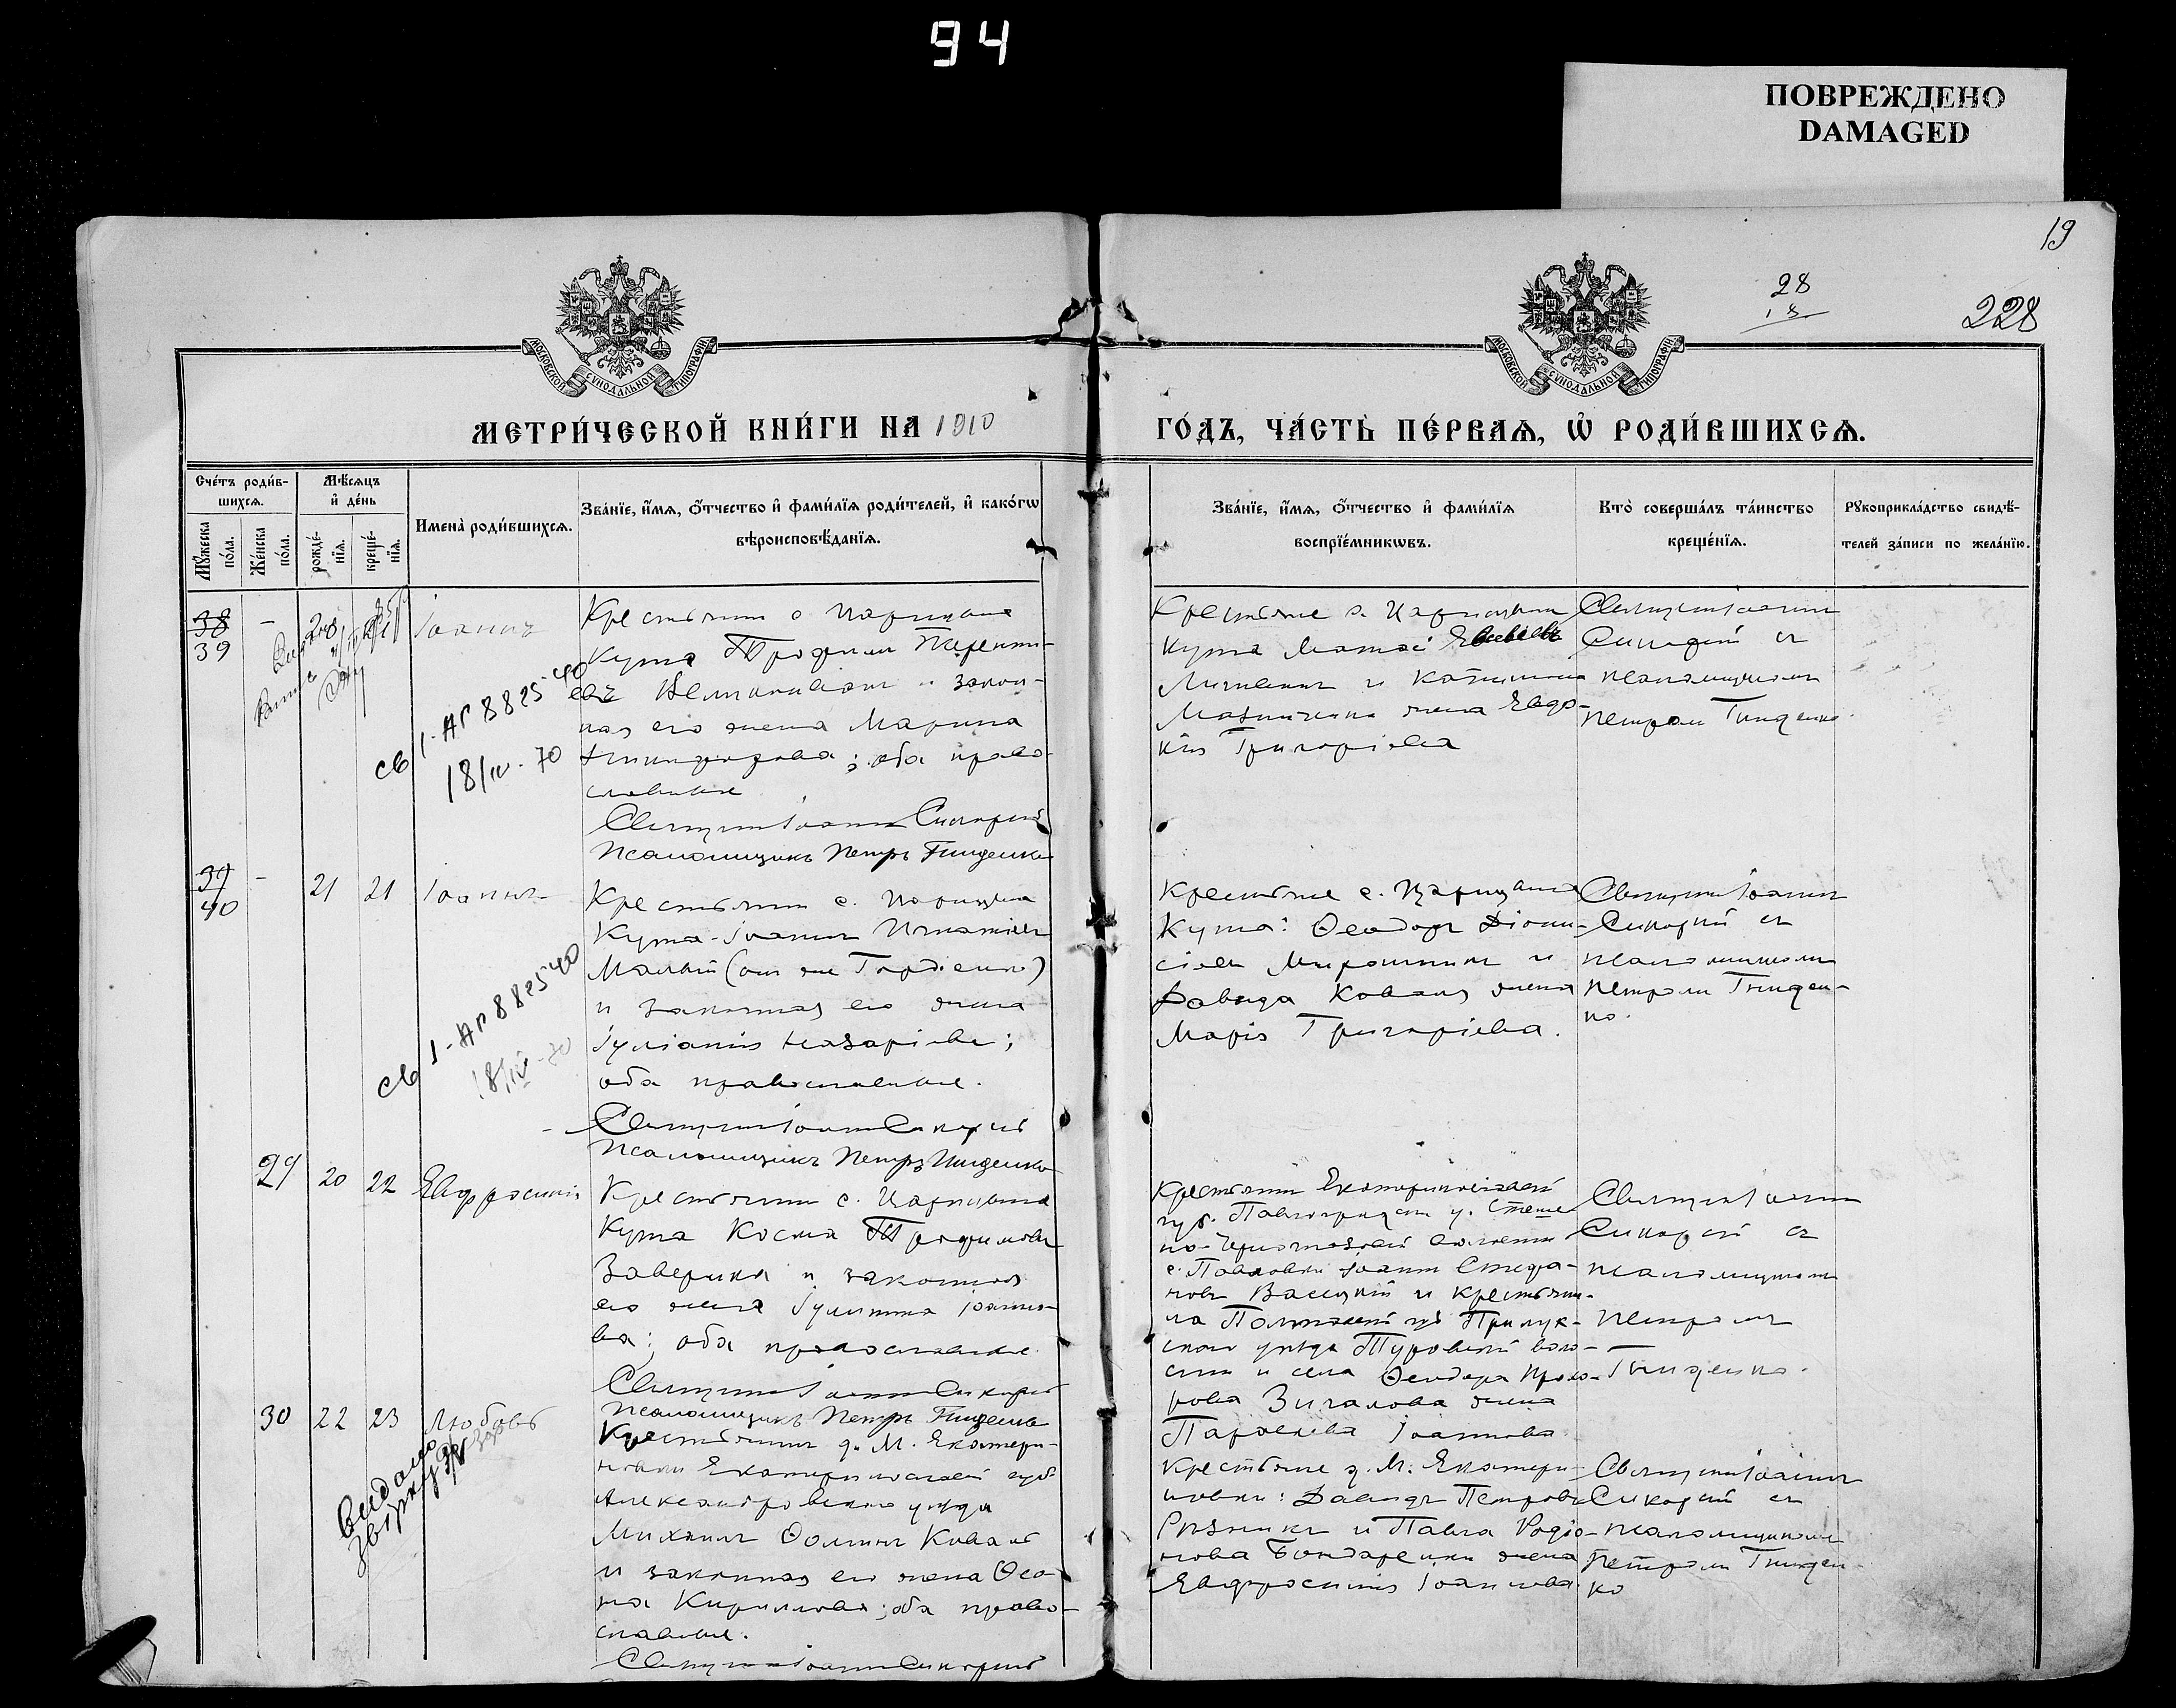 94
ПОВРЕЖДЕНО
DAMAGED
19
28
228
МОСКОВСКОЙ СУНОДАЛЬНОЙ ТИПОГРАФІИ
МОСКОВСКОЙ СУНОДАЛЬНОЙ ТИПОГРАФІИ
МЕТРИ́ЧЕСКОЙ КНИ́ГИ НА 1910
ГО́ДЪ, ЧА́СТЬ ПЕ́РВАѦ, Ѡ РОДИ́ВШИХСѦ.
Сче́тъ роди́в-
шихсѧ.
Мѹ́жеска по́ла.
Же́нска по́ла.
Мѣ́сѧцъ
и҆ де́нь
рожде́-
нїѧ.
креще́-
нїѧ.
Имена̀ роди́вшихсѧ.
Зва́нїе, и҆́мѧ, ѻ҆́тчество и҆ фами́лїѧ роди́телей, и҆ како́гѡ
вѣроисповѣ́данїѧ.
Зва́нїе, и҆́мѧ, ѻ҆́тчество и҆ фами́лїѧ
воспрїе́мникѡвъ.
Кто̀ соверша́лъ та́инство
креще́нїѧ.
Рѹкоприкла́дство свидѣ́-
телей за́писи по жела́нїю.
38
39
-
Іоаннъ
Крестьянинъ с. Царицына
Кута Трофимъ Терентi-
евъ и закон-
ная его жена Марина
; оба право-
славные
Священникъ Іоаннъ Сикорскій
Псаломщикъ Петръ Гниденко
св 1-АП 882540
18/IV-70
Крестьяне с. Царицына
Кута Матѳей
и
жена Евдо-
кія Григоріева
Священникъ Іоаннъ
Сикорскій съ
псаломщикомъ
Петромъ Гниденко.
39
40
-
21
21
Іоаннъ
Крестьянинъ с. Царицына
Кута Іоаннъ Игнатіевъ
Малый (онъ же Гордіенко)
и законная его жена
Іуліанія Назаріева;
оба православные.
Священникъ Іоаннъ Сикорскій
Псаломщикъ Петръ Гниденко
св 1-АП 882540
18/IV-70
Крестьяне с. Царицына
Кута: Ѳеодоръ Діони-
сіевъ Мирошникъ и
Давида Коваля жена
Марія Григоріева.
Священникъ Іоаннъ
Сикорскій съ
псаломщикомъ
Петромъ Гниден-
ко.
29
20
22
Евфросинія
Крестьянинъ с. Царицына
Кута Косма Трофимовъ
Заверуха и законная
его жена Іулитта Іоанно-
ва; оба православные.
Священникъ Іоаннъ Сикорскій
Псаломщикъ Петръ Гниденко
Крестьянинъ Екатеринославской
губ. Павлоградскаго у.
волости
с. Павловки Іоаннъ Стефа-
новъ Васецкій и крестьяни-
на Полтавской губ. Прилук-
скаго уѣзда Туровской воло-
сти и села Ѳеодора Прохо-
рова Зигалова жена
Параскева Іоаннова
Священникъ Іоаннъ
Сикорскій съ
псаломщикомъ
Петромъ
Гниденко.
30
22
23
Любовь
Крестьянинъ д. М. Екатери-
новки Екатеринославской губ.
Александровскаго уѣзда
Михаилъ Ѳоминъ Коваль
и законная его жена Ѳео-
на Кириллова; оба право-
славные.
Священникъ Іоаннъ Сикорскій
Крестьяне д. М. Екатери-
новки: Давидъ Петровъ
Рѣзникъ и Павла Родіо-
нова Бондаренки жена
Евфросинія Іоаннова.
Священникъ Іоаннъ
Сикорскій съ
псаломщикомъ
Петромъ Гниден-
ко